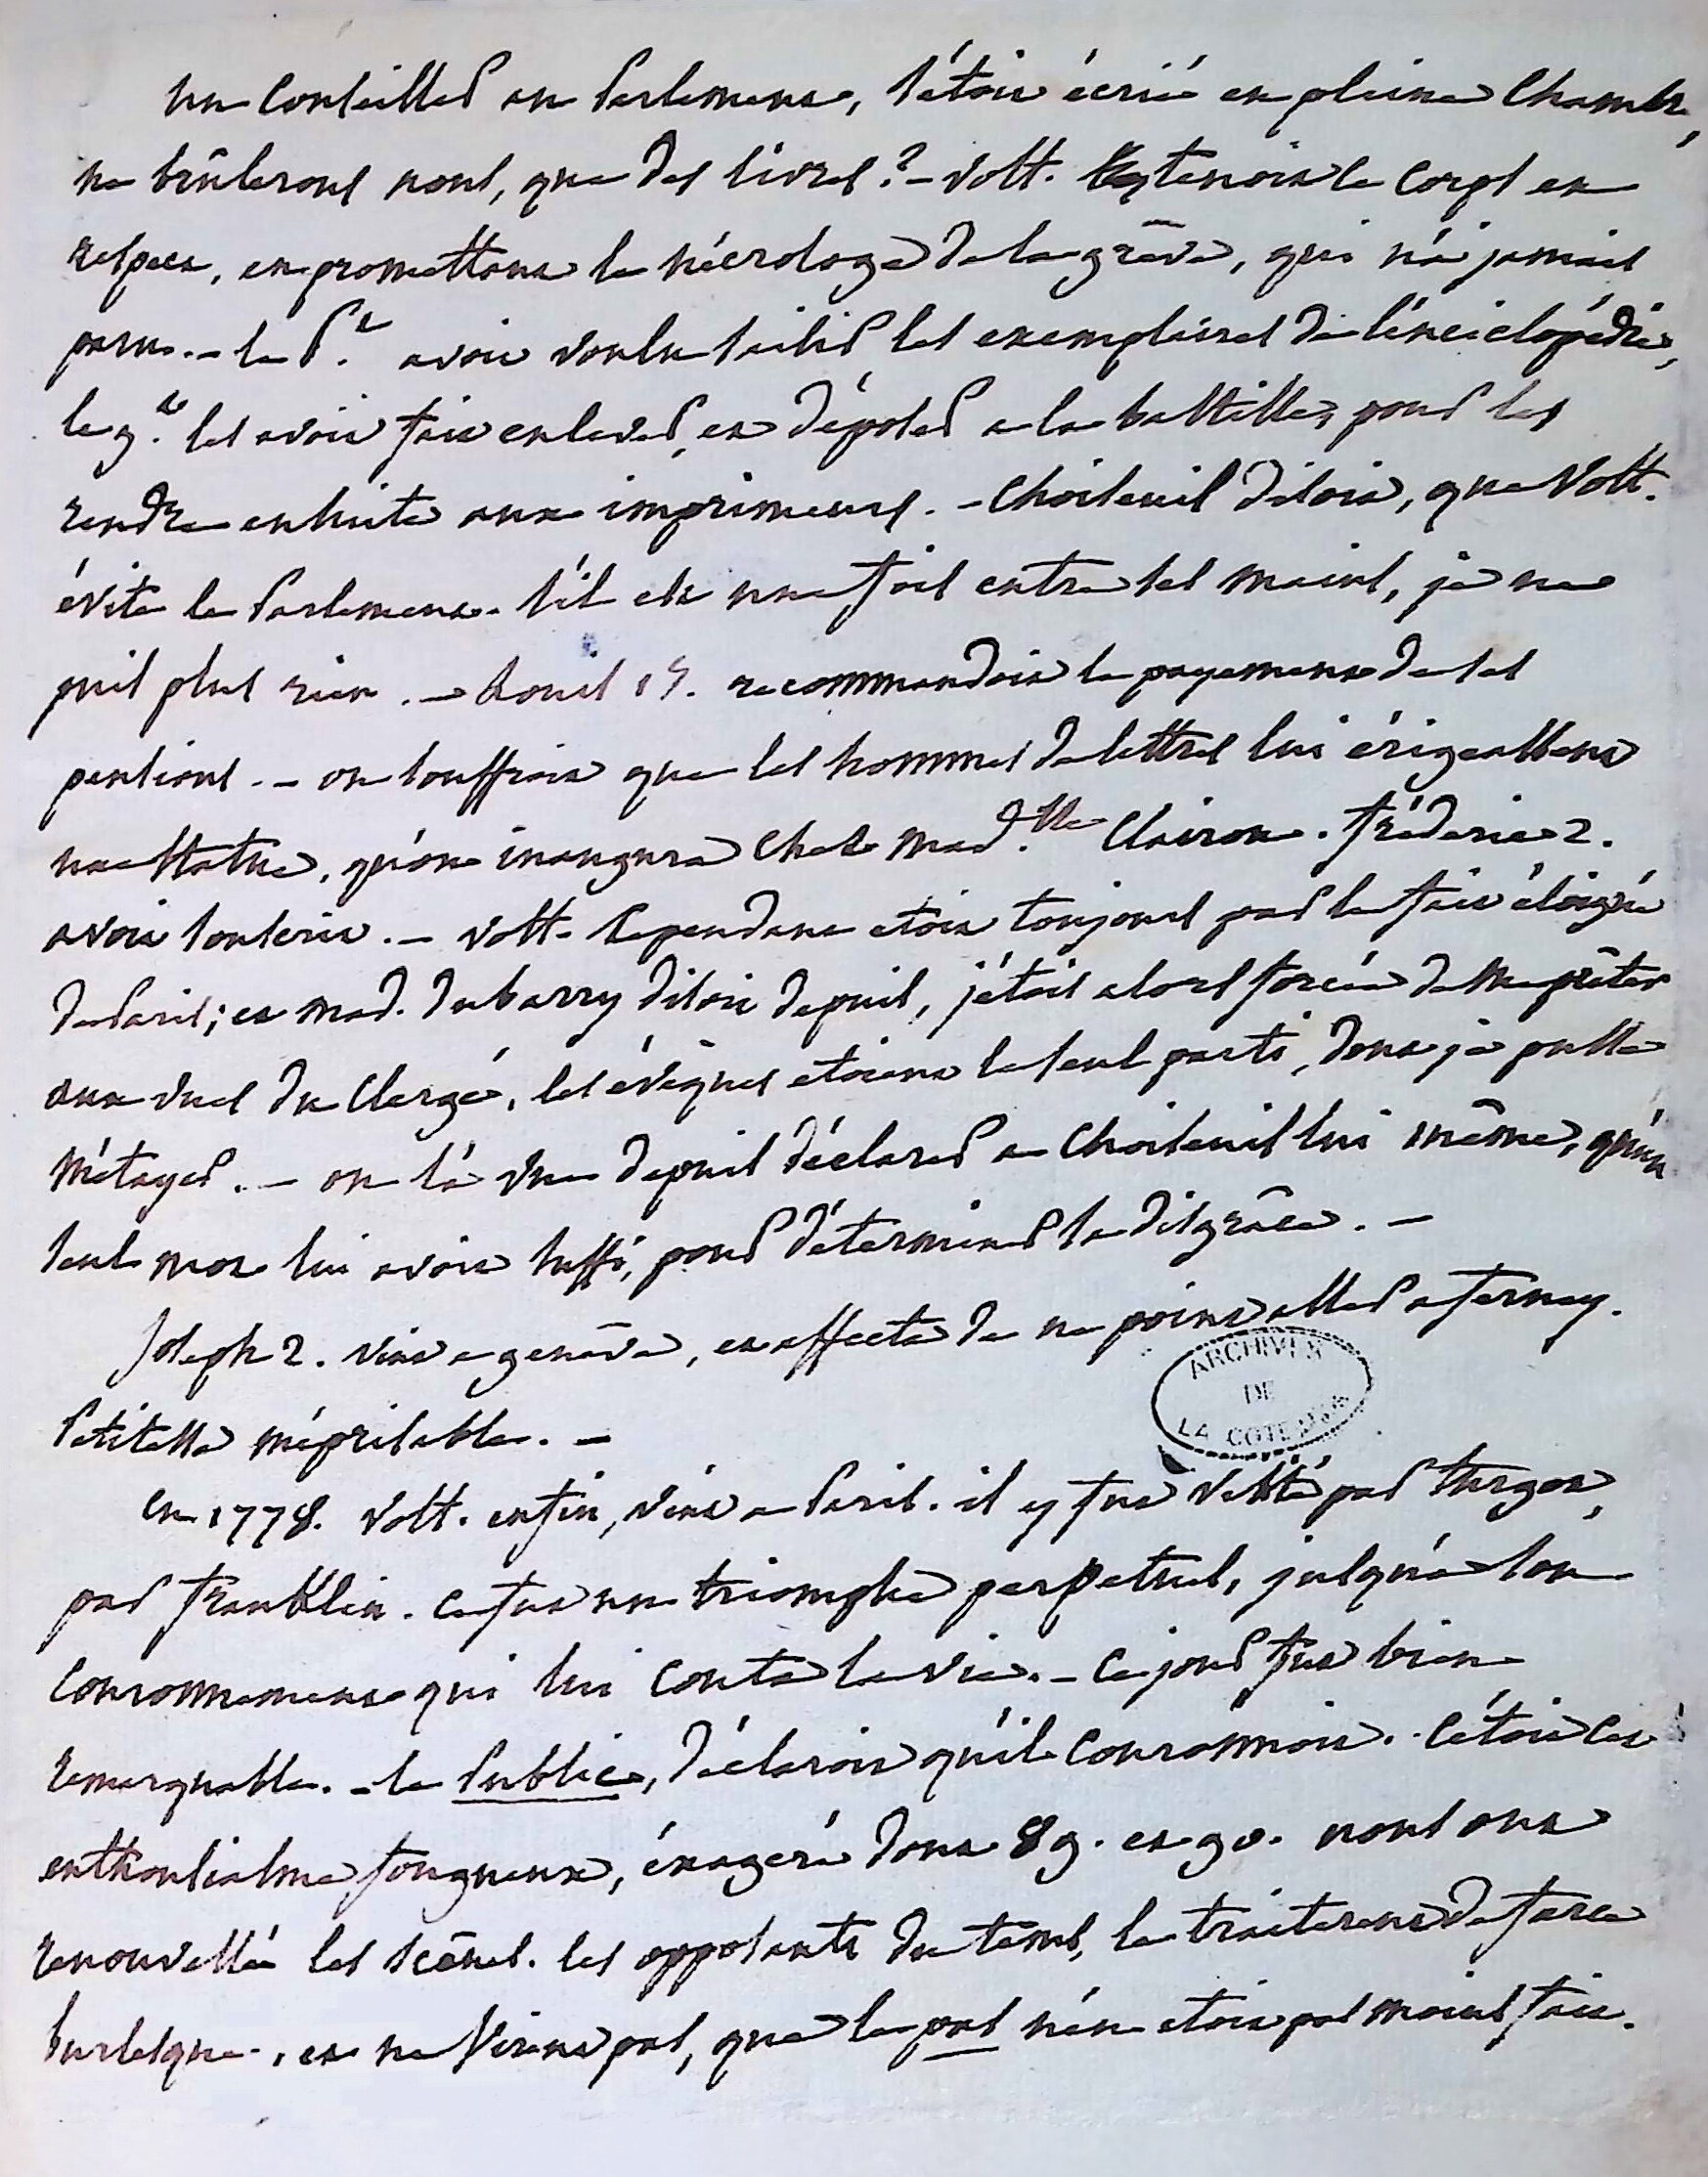 un conseiller au Parlement, s'étoit écrié en pleine Chambre,
ne brûlerons nous, que des livres? – Volt. tenoit le corps en
respect, en promettant le nécrologe de la grêve, qui n'a jamais
paru. – le P.t avoit voulu saisir les exemplaires de l'énciclopédie,
le g.t les avoit fait enlever, et déposer a la bastille, pour les
rendre ensuite aux imprimeurs. – Choiseuil disoit, que Volt.
évite le Parlement. s'il est une fois entre ses mains, je ne
puis plus rien. – Louis 15. recommandoit le payement de ses
pensions. – on souffroit que les hommes de lettres lui érigeassent
une statue, qu'on inaugura chez mad.lle Clairon. fréderic 2.
avoit souscrit. – Volt. cependant etoit toujours par le fait éloigné
de Paris; et mad. dubarry disoit depuis, j'étois alors forcée de me prêter
aux vues du Clergé, les évêques etoient le seul parti, dont je pusse
m'étayer. – on l'a vue depuis déclarer a Choiseuil lui même, qu'un
seul mot lui avoit suffi, pour déterminer sa disgrâce. –
Joseph 2. vint a genêve, et affecta de ne point aller a ferney.
Petitesse méprisable. –
En 1778. Volt. enfin, vint a Paris. il y fut visité par Turgot,
par franklin. ce fut un triomphe perpetuel, jusqu'a son
couronnement qui lui couta la vie. – ce jour fut bien
remarquable. – le Public, déclaroit qu'il couronnoit. c'étoit cet
enthousiasme fougueux, éxagéré dont 89. et 90. nous ont
renouvellé les scênes. les opposants du tems, le traiterent de farce
burlesque, et ne virent pas, que le pas n'en etoit pas moins fait.
ARCHIVES
DE
LA COTE D'OR